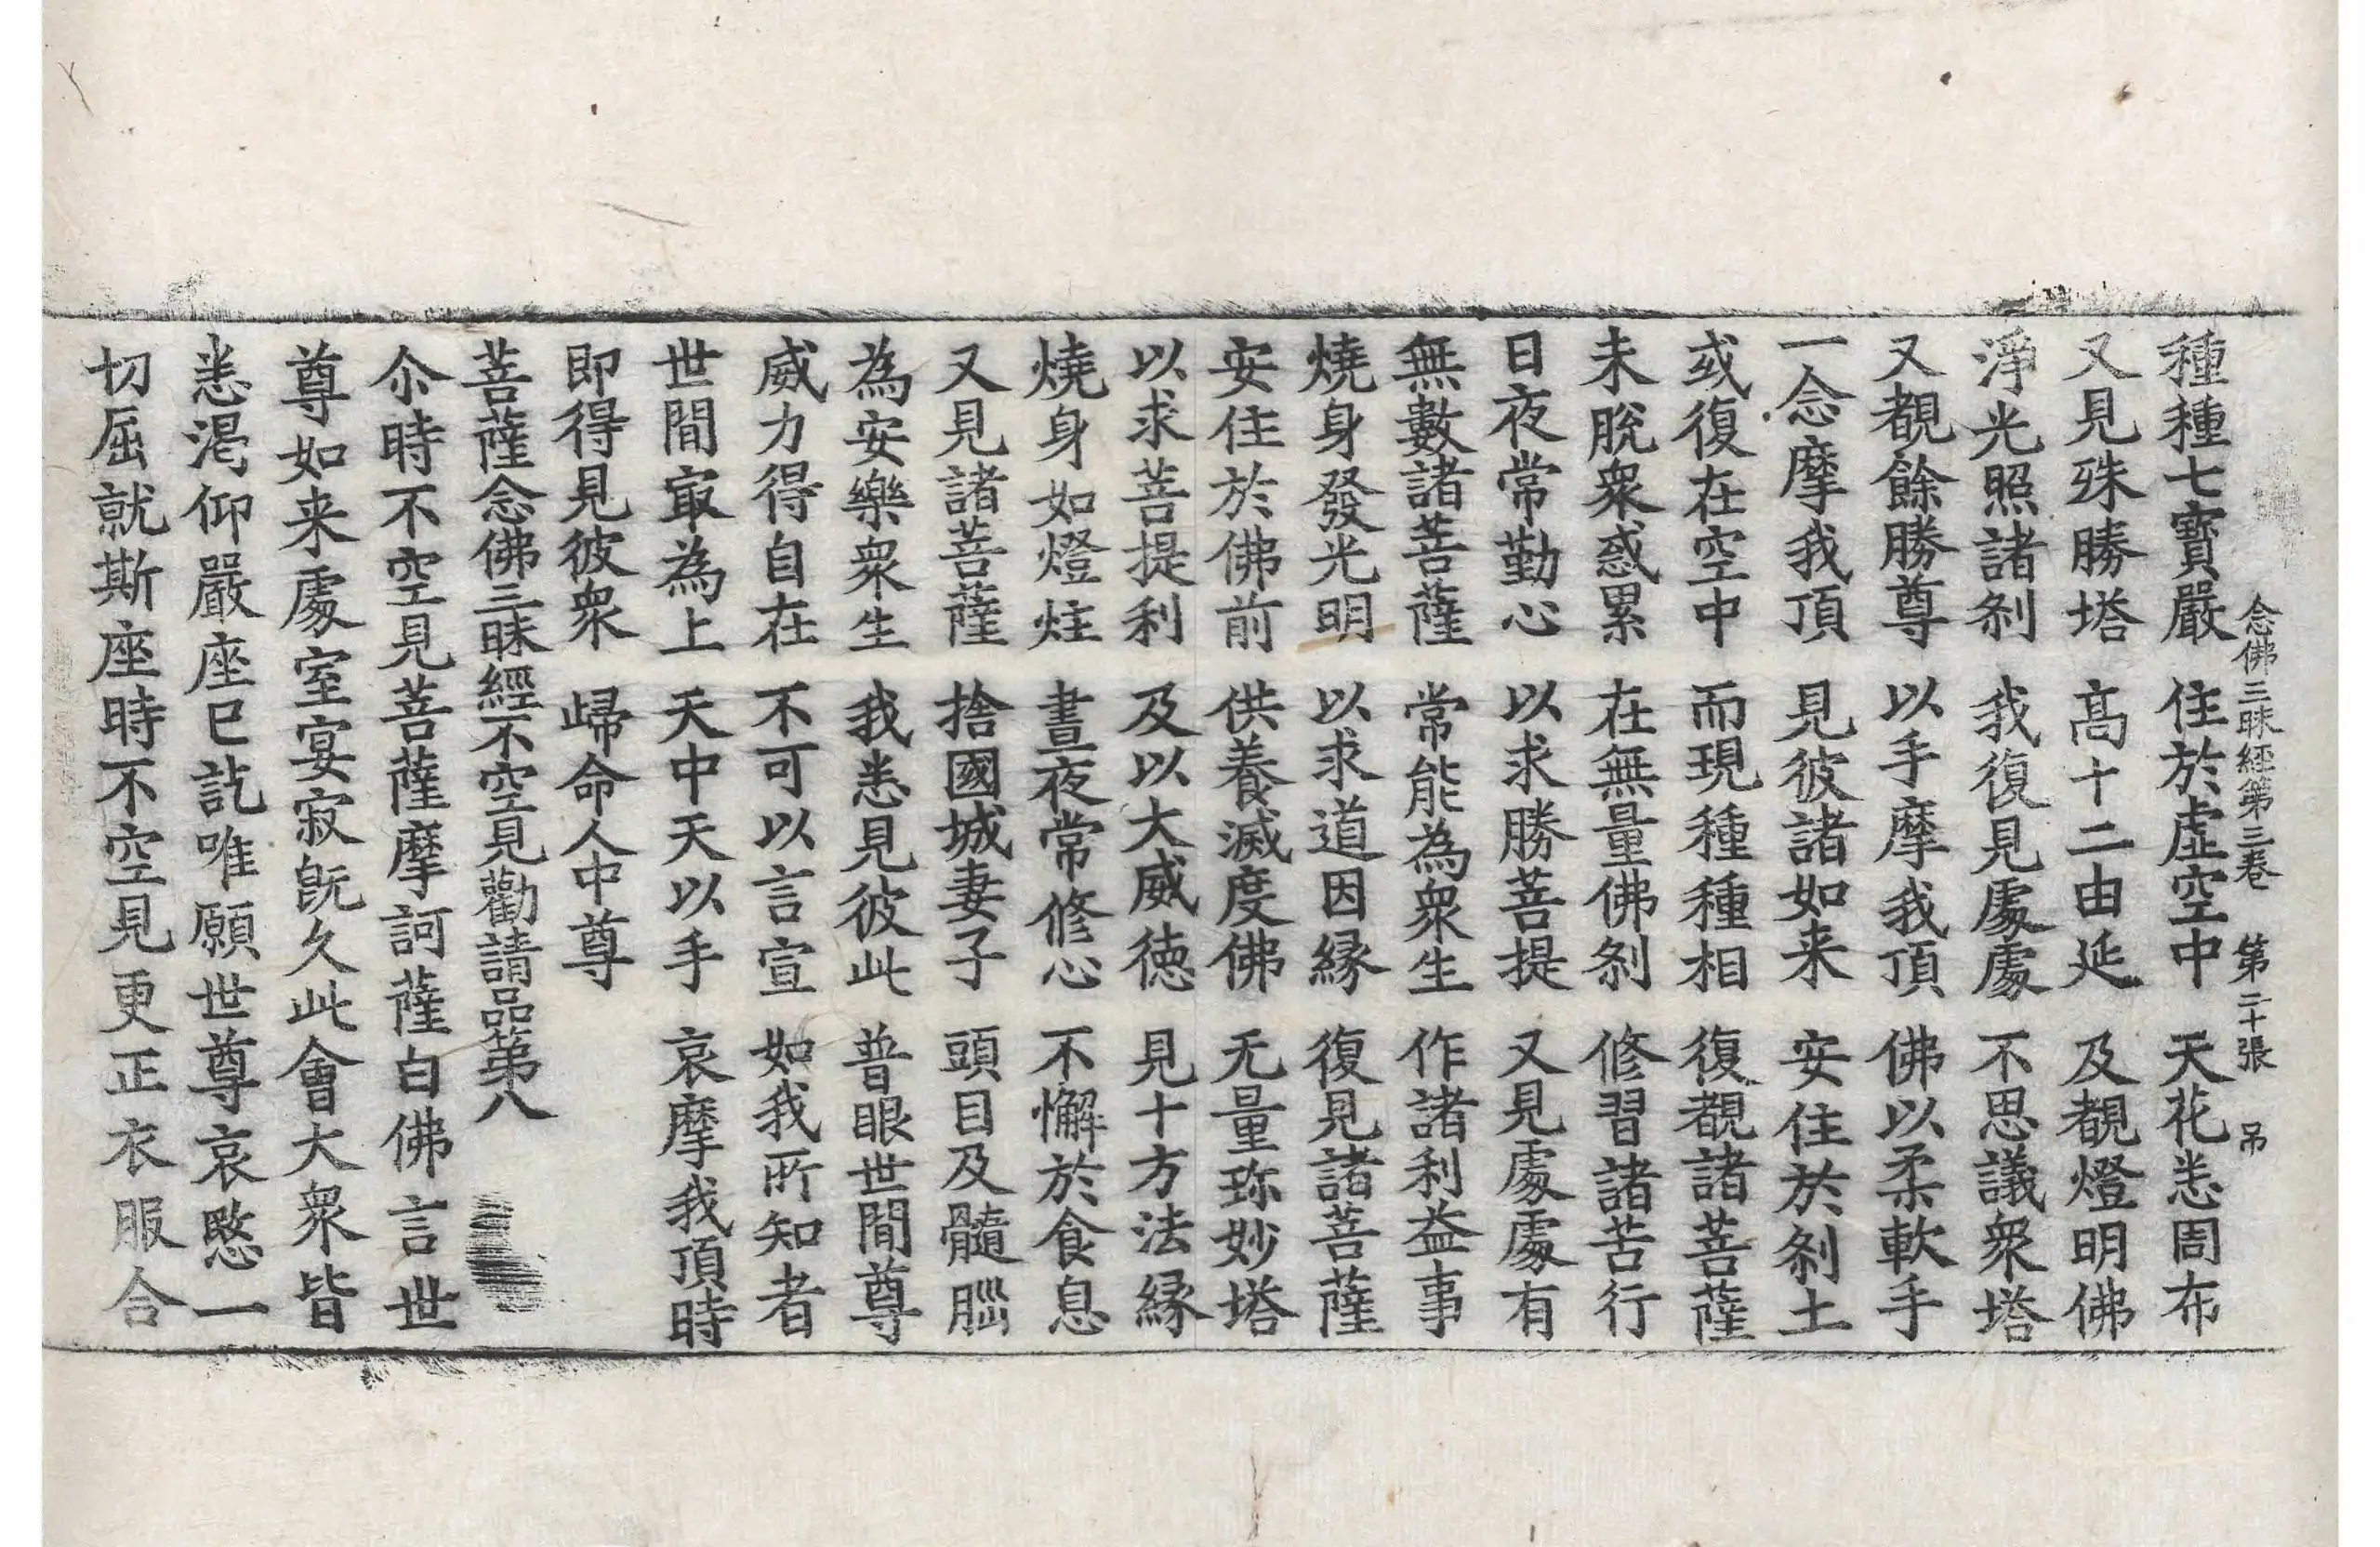 念佛三昧經第三卷　第二十張　吊
種種七寳嚴　住於虛空中　天花悉周布
又見殊勝塔　髙十二由延　及覩燈明佛
淨光照諸刹　我復見處處　不思議衆塔
又覩餘勝尊　以手摩我頂　佛以柔軟手
一念摩我頂　見彼諸如来　安住於刹土
或復在空中　而現種種相　復覩諸菩薩
未脫衆惑累　在無量佛刹　修習諸苦行
日夜常勤心　以求勝菩提　又見處處有
無數諸菩薩　常能為衆生　作諸利益事
燒身發光明　以求道因縁　復見諸菩薩
安住於佛前　供養滅度佛　无量珎妙塔
以求菩提利　及以大威德　見十方法縁
燒身如燈炷　晝夜常修心　不懈於食息
又見諸菩薩　捨國城妻子　頭目及髓𦛁
為安樂衆生　我悉見彼此　普眼世間尊
威力得自在　不可以言宣　如我所知者
世間㝡為上　天中天以手　哀摩我頂時
即得見彼衆　歸命人中尊
菩薩念佛三昧經不空見勸請品第八
尒時不空見菩薩摩訶薩白佛言世
尊如来處室宴寂旣久此會大衆皆
悉渇仰嚴座已訖唯願世尊哀愍一
切屈就斯座時不空見更正衣服合